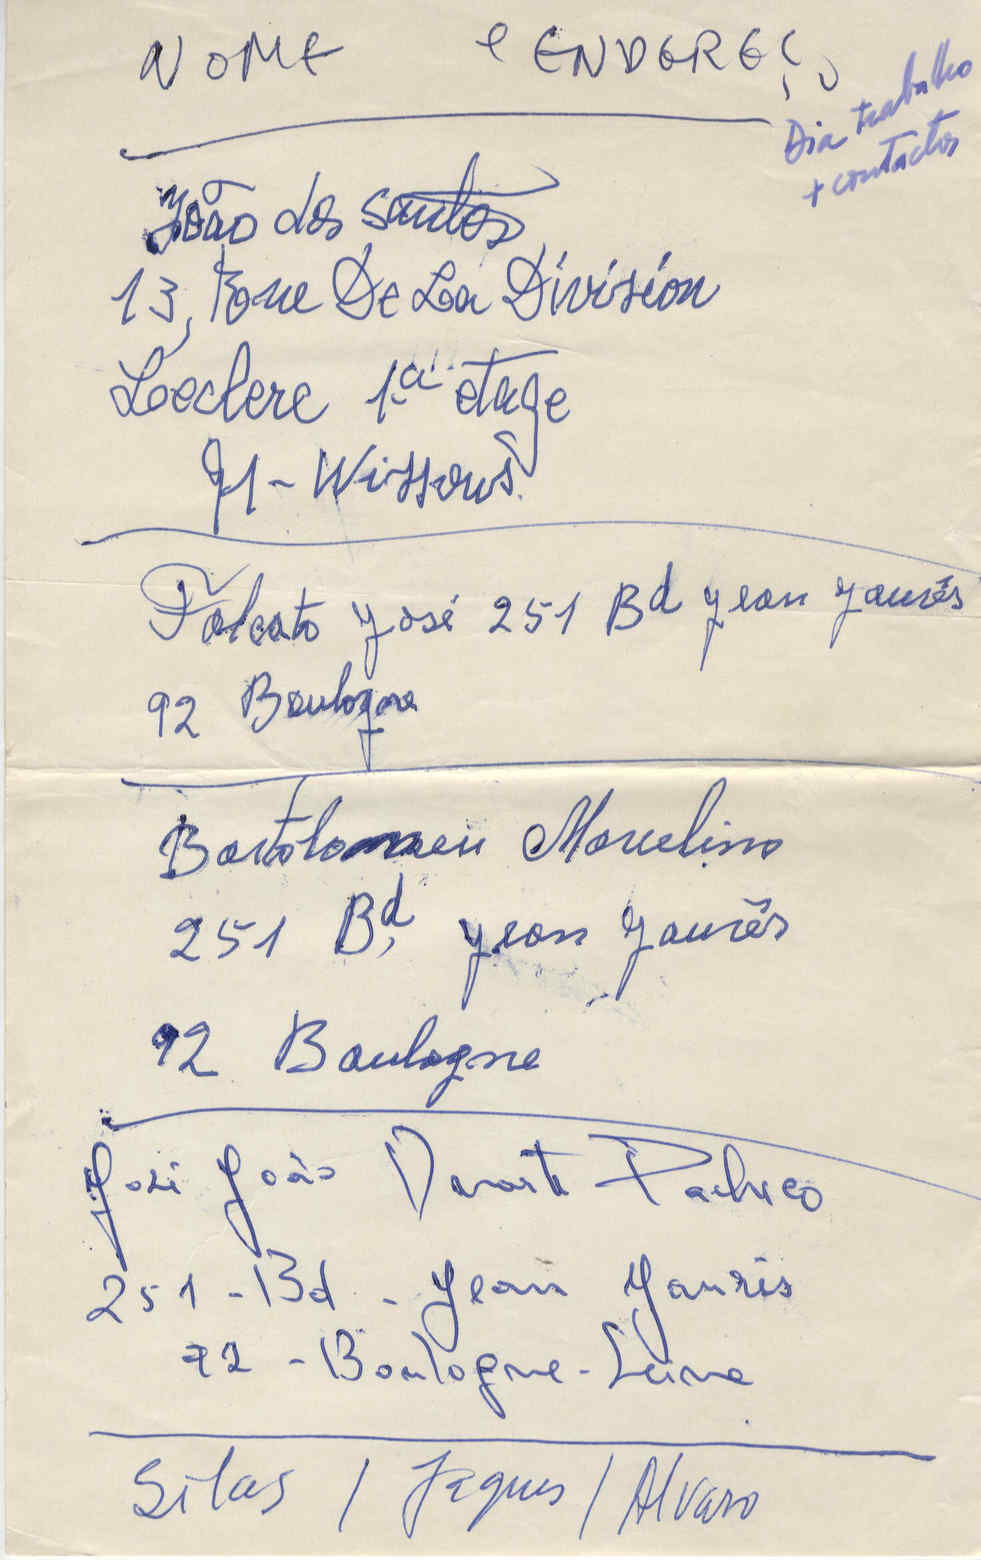 NOME e ENDEREÇO
Dia trabalho
+ contactos
João dos Santos
13, Rue De La Division
Leclerc 1.a etage
91 - Wissous.
José 251 Bd Jean Jaurés
92 Boulogne
Bartolomeu Marcelino
251 Bd, Jean Jaurês
92 Boulogne
José João Duarte Pacheco
251 - Bd - Jean Jaurés
92 - Boulogne - Seine
Silas / Jaques / Alvaro